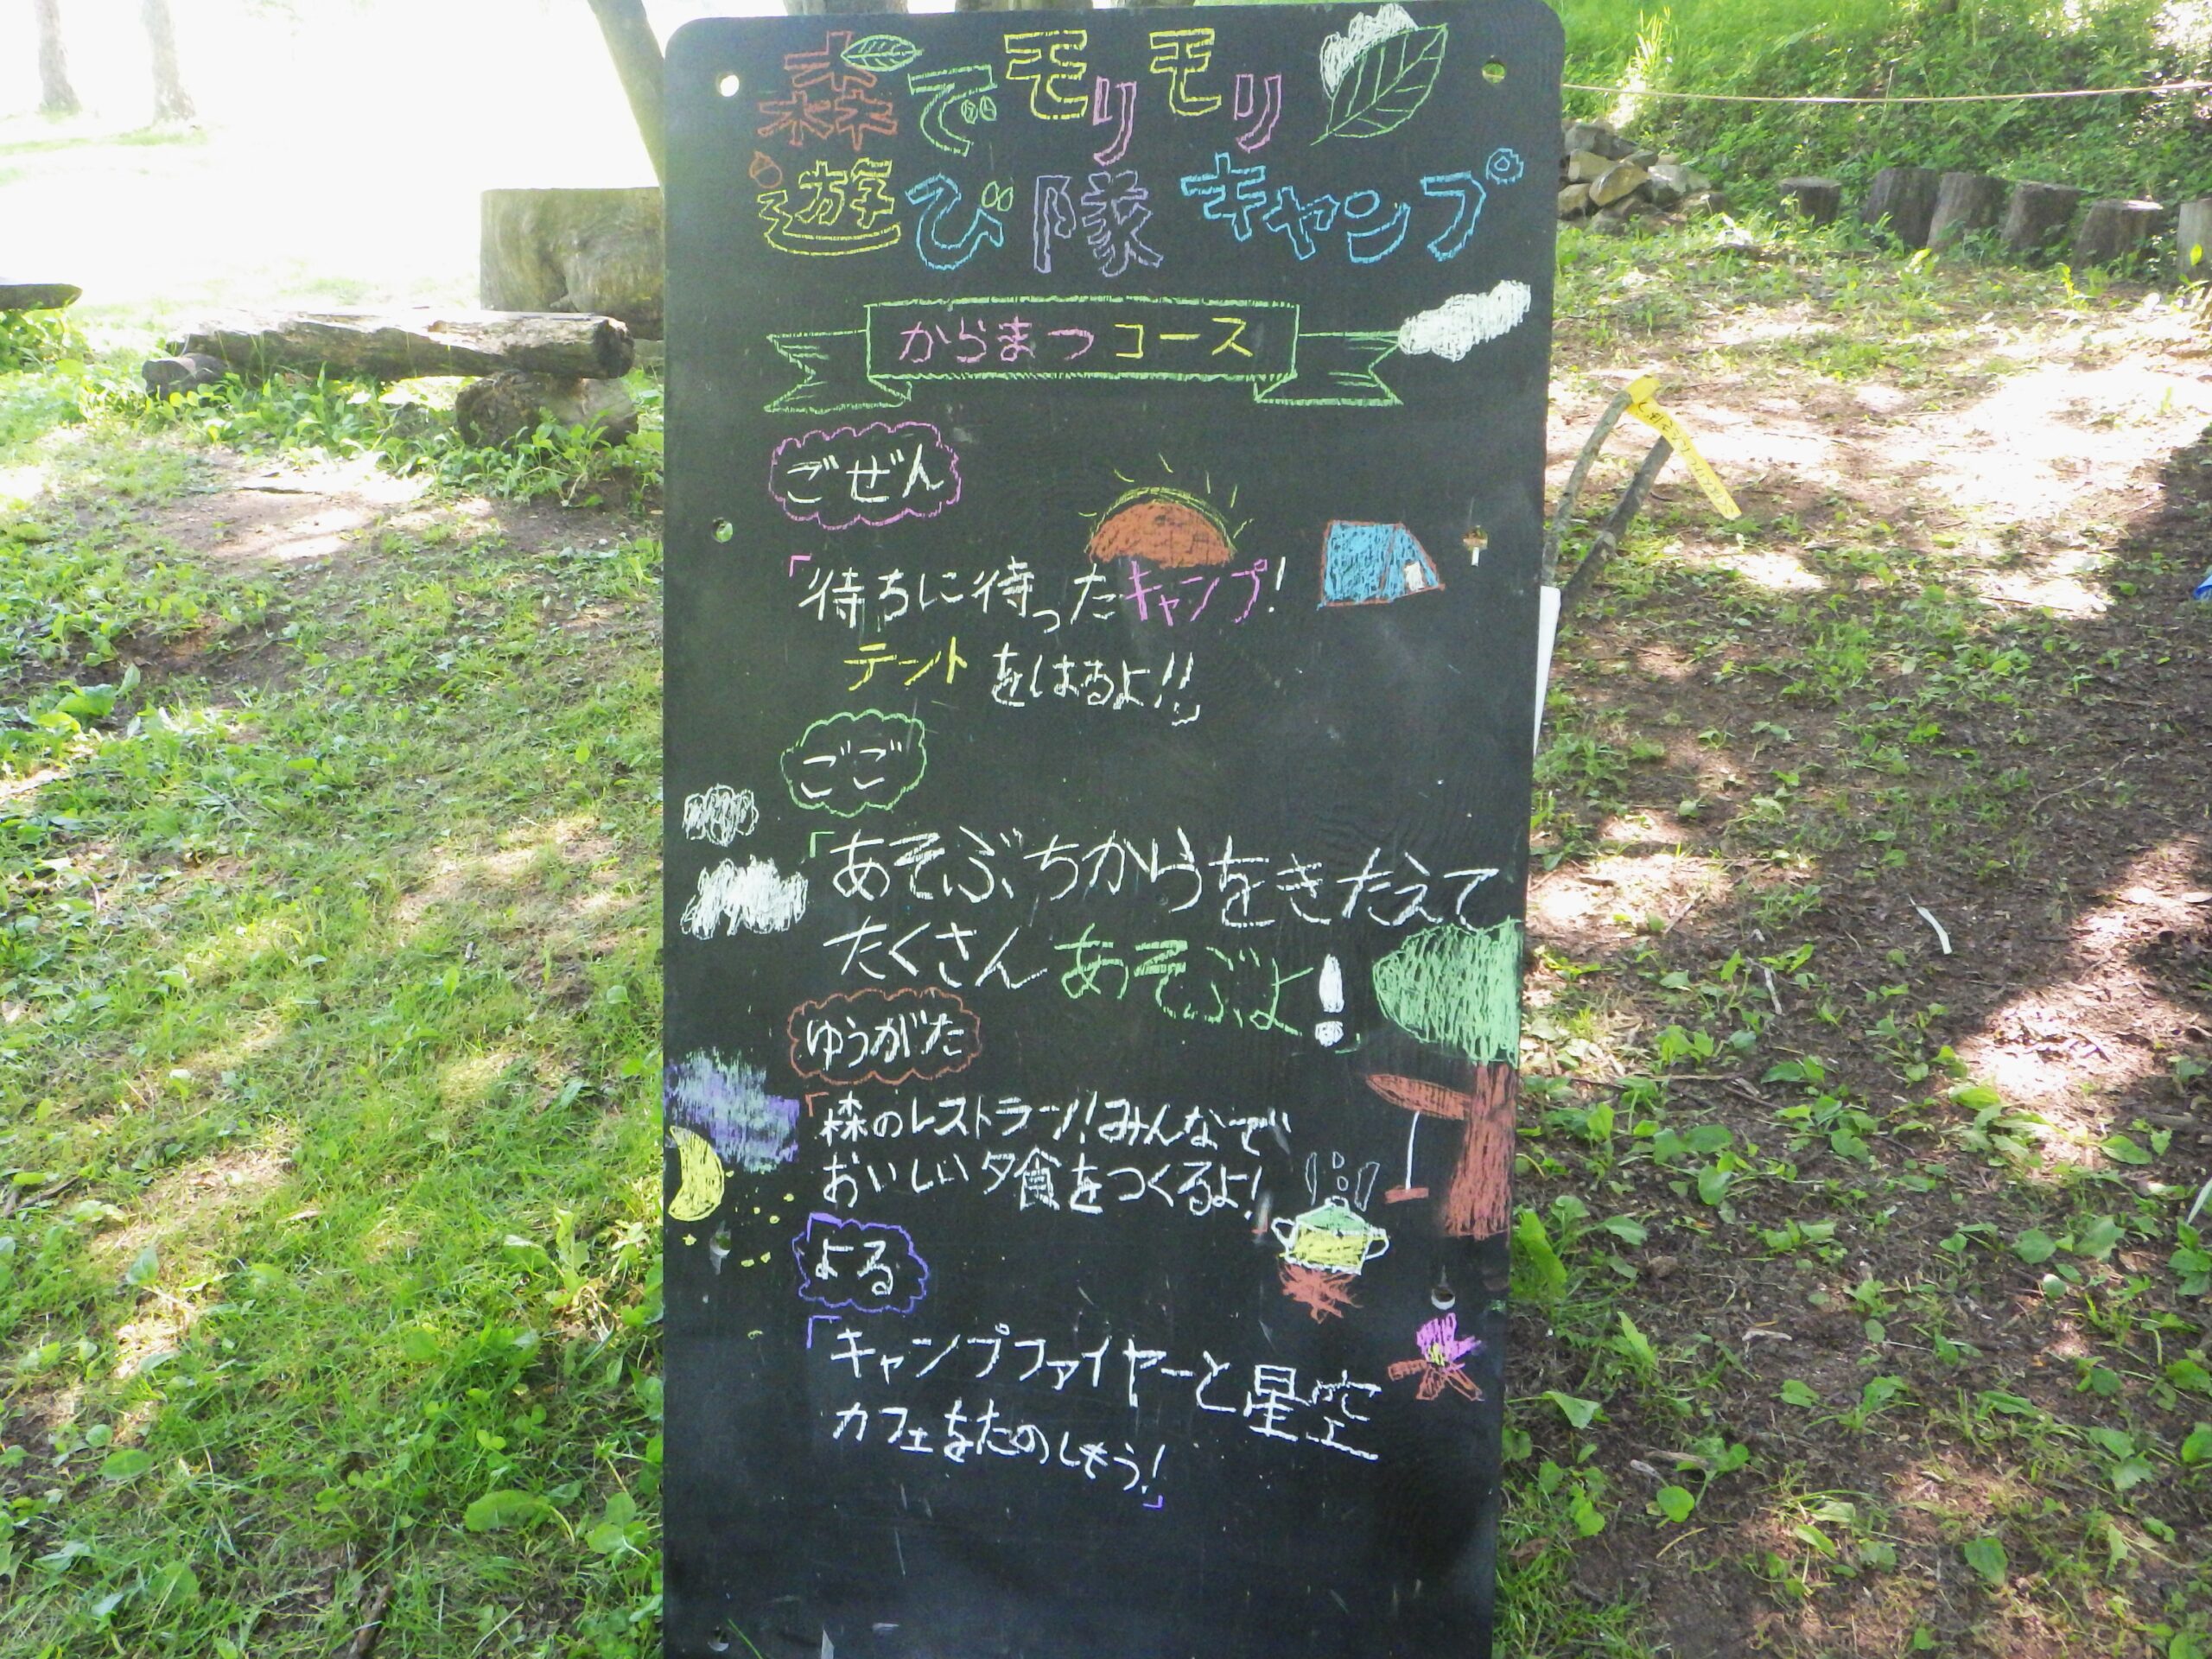 森でモリモリ
遊び隊キャンプ
からまつコース
ごぜん
「待ちに待ったキャンプ!
テントをはるよ!!」
ごご
「あそぶちからをきたえて
たくさんあそぶよ!」
ゆうがた
「森のレストラン!みんなで
おいしい夕食をつくるよ!」
よる
「キャンプファイヤーと星空
カフェをたのしもう!」